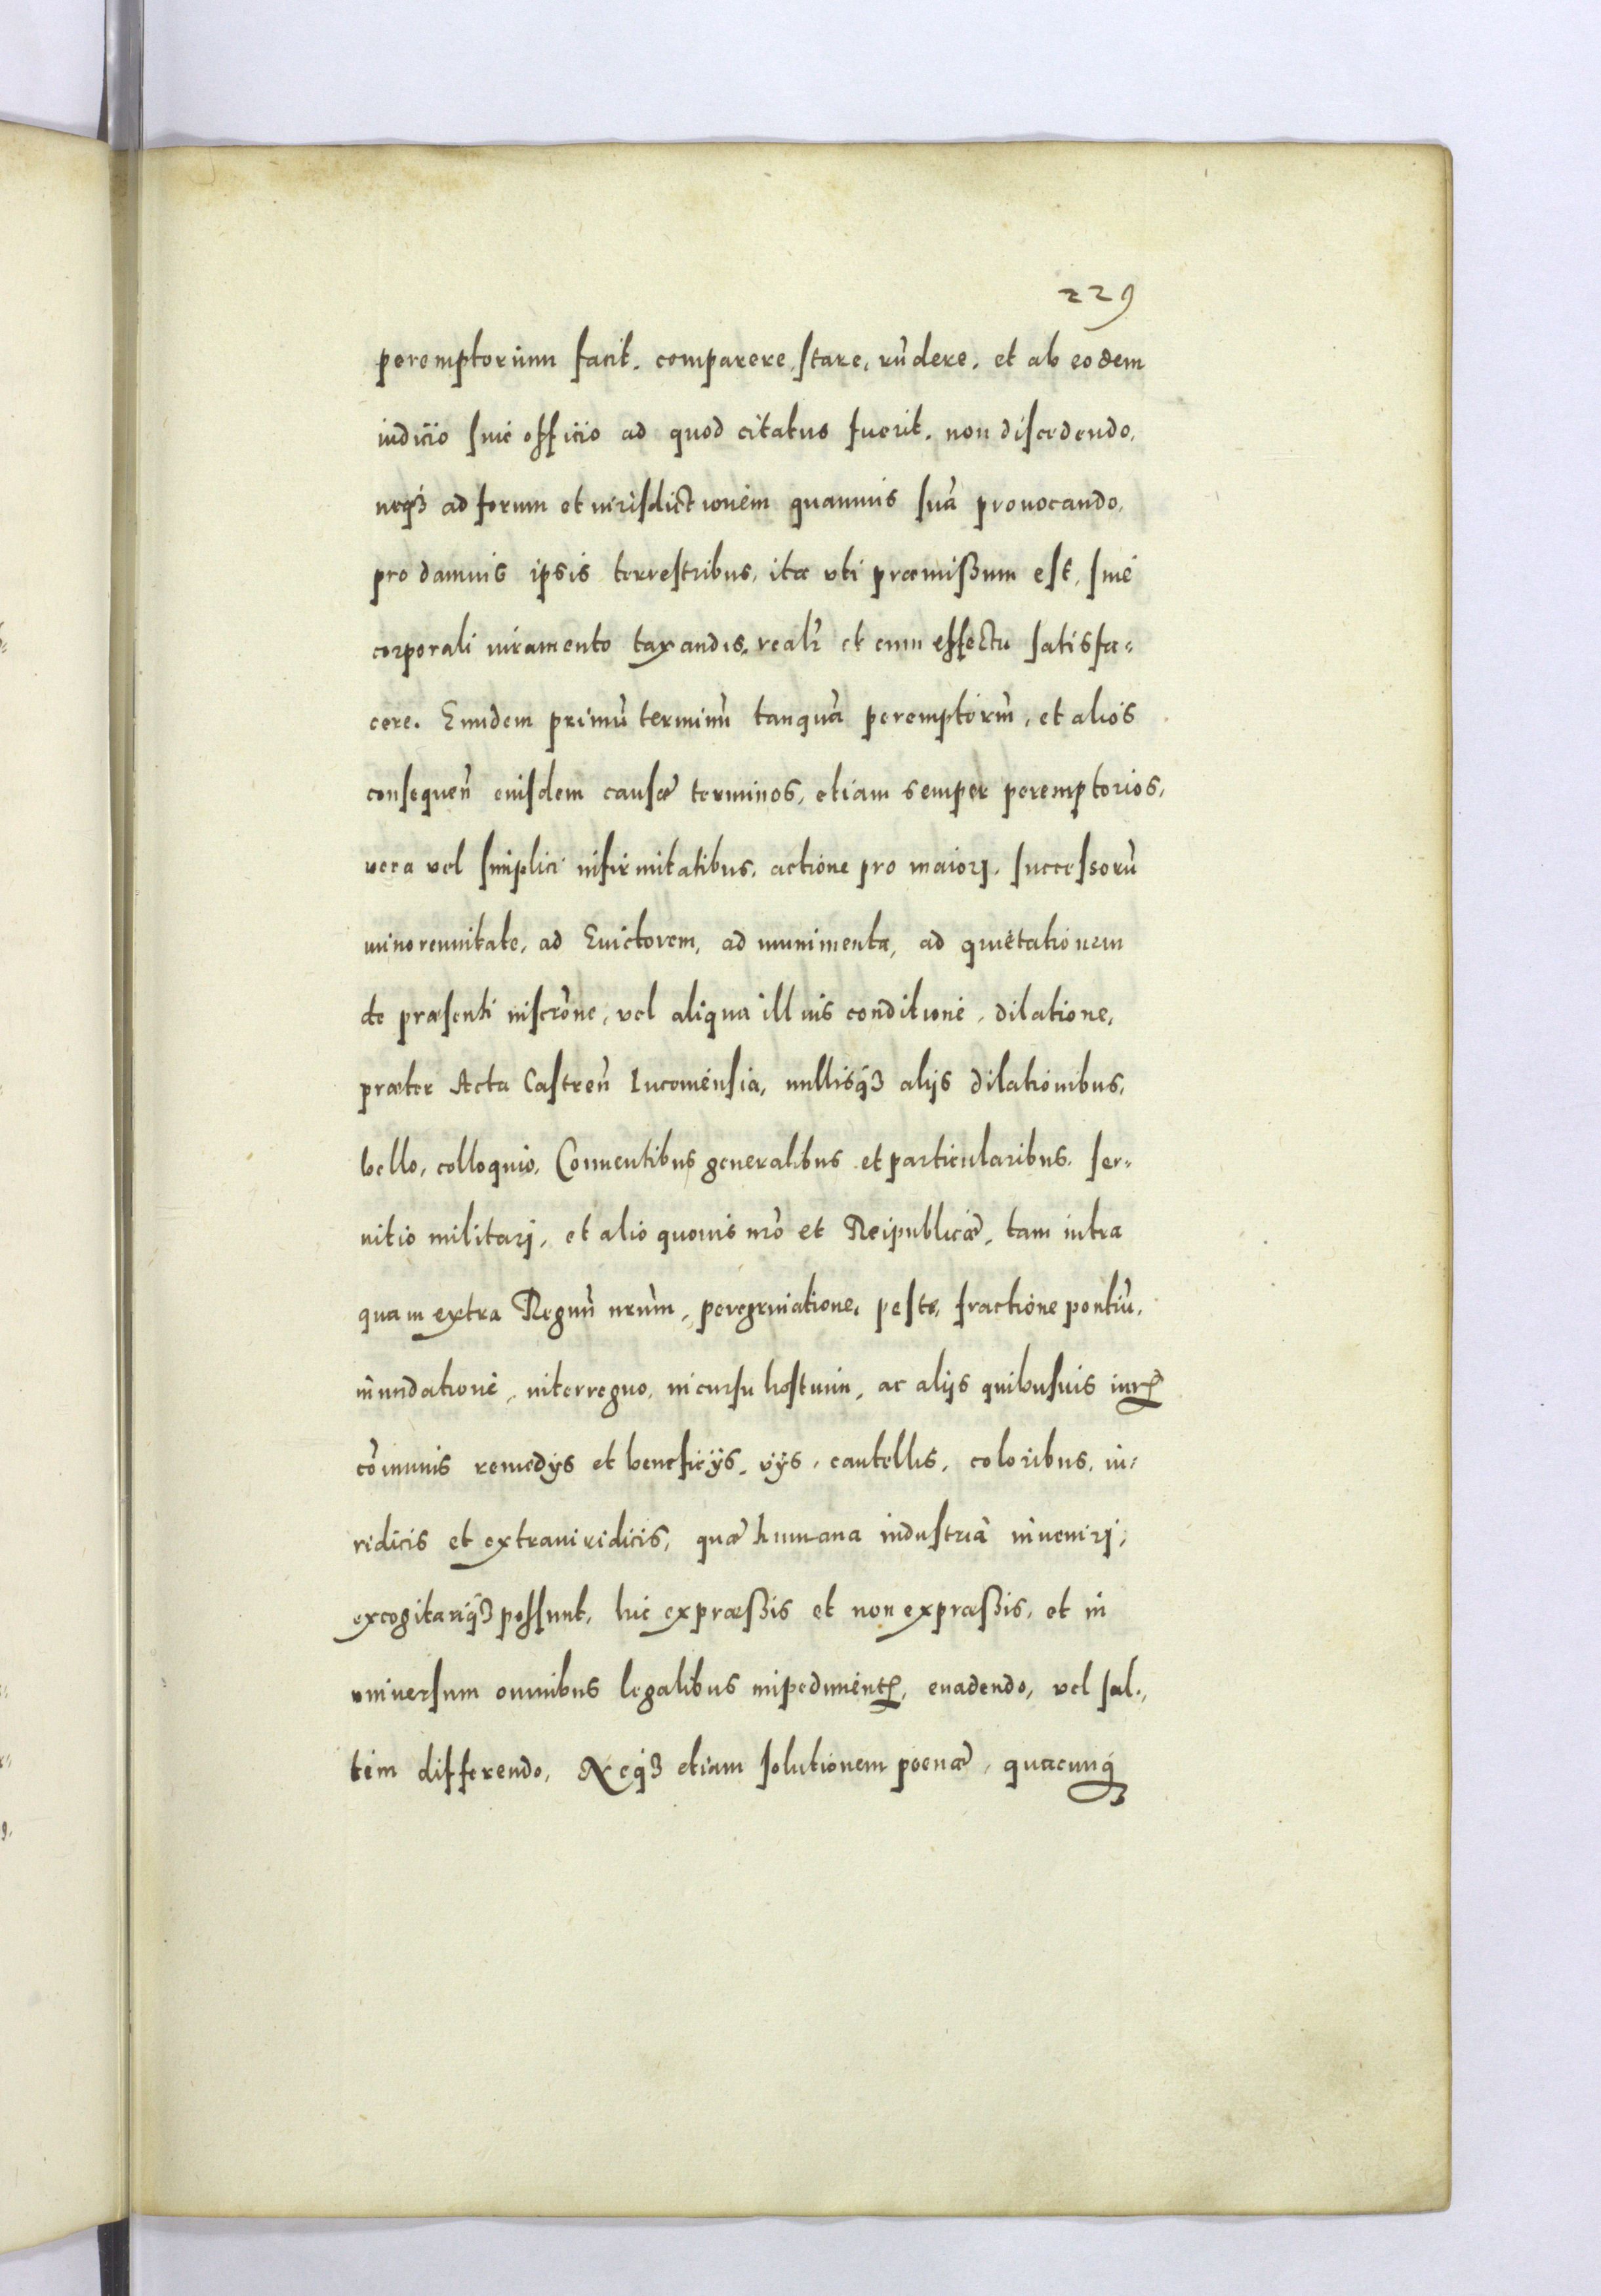 229
peremptorium facit. comparere, stare, rūdere. et ab eodem
iudicio siue officio ad quod citatus fuerit. non discedendo,
neqȝ ad forum et iurisdictionem quamuis suā prouocando,
pro damnis ipsis terrestribus, ita vti præmißum est, sine
corporali iuramento taxandis, realr̃ et cum effectu satisfa-
cere. Eundem primū terminū tanquā peremptoriū, et alios
consequeñ eiusdem causæ terminos, etiam semper peremptorios,
vera vel simplici infirmitatibus, actione pro maiorj, successorū
minorennitate, ad Euictorem, ad munimenta, ad quietationem
de præsenti inscrōne, vel aliqua illius conditione, dilatione,
præter Acta Castreñ Iunomensia, nullisqȝ alijs dilationibus,
bello, colloquio, Conuentibus generalibus et particularibus, ser-
uitio militarj, et alio quouis nr̄o et Reipublicæ, tam intra
quam extra Regnū nr̄um, peregrinatione, peste, fractione pontiū,
inundatione, interregno, incursu hostium, ac alijs quibusuis iurꝭ
cōmunis remedijs et beneficijs, vijs, cautellis, coloribus, iu-
ridicis et extraiuridicis, quæ humana industria inuenirj,
excogitariqȝ possunt, hic expræßis et non expræßis, et in
vniuersum omnibus legalibus impedimentꝭ, euadendo, vel sal-
tem differendo, Neqȝ etiam solutionem poenæ, quacunqȝ